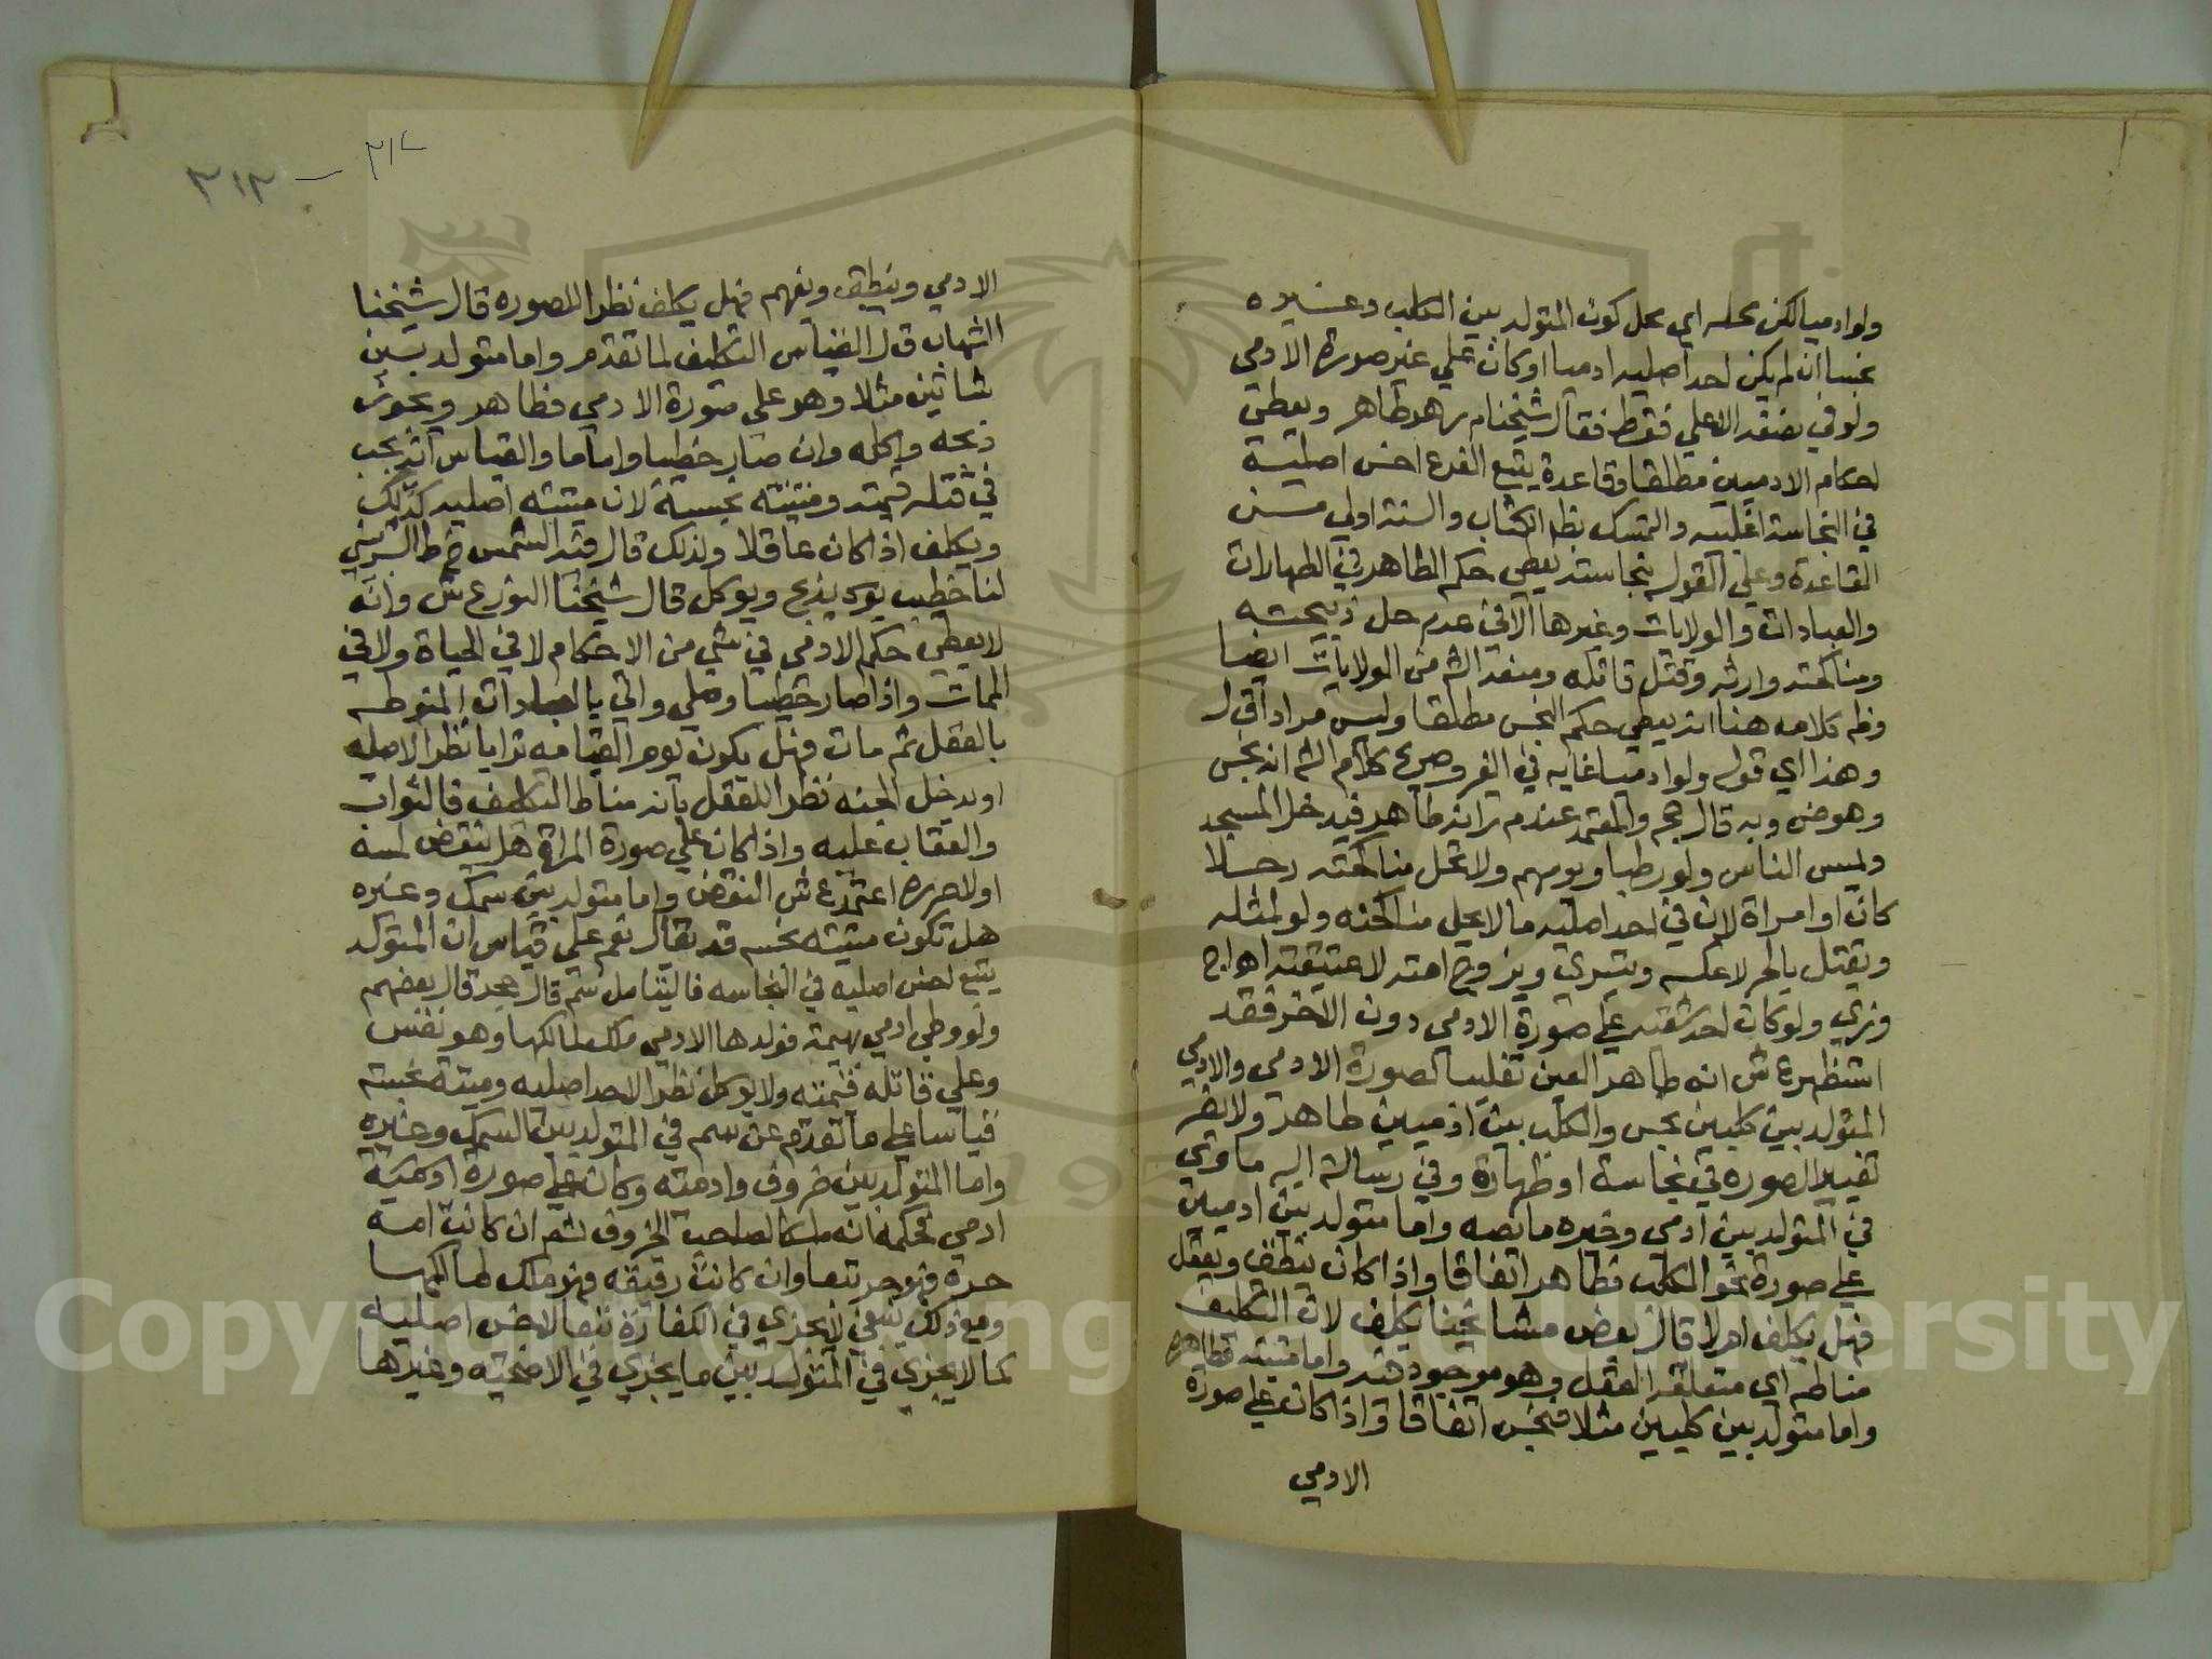 ولو ادميا لكن محله اي محل كون المتولد بين الكلب وغيره
نجسا ان لم يكن احد اصليه ادميا او كان علي غير صورة الادمي
ولو في نصفه الاعلي فقط فقال شيخنا م ر هو طاهر ويعطي
احكام الادميين مطلقا وقاعدة يتبع الفرع اخس اصليه
في النجاسة اغلبيه والتمسك بظ الكتاب والسنة اولي مـن
القاعدة وعلي القول بنجاسته يعطي حكم الطاهر في الطهارات
والعبادات والولايات وغيرها الا في عدم حل ذبيحته
ومناكحته وارثه وقتل قاتله ومنعه الش من الولايات ايضا
وظ كلامه هنا انه يعطي حكم النجس مطلقا وليس مرادا ق ل
وهذا اي قوله ولو ادميا غايه في الفر وصريح كلام الش انه نجس
وهو ض وبه قال حج والمعتمد عند م ر انه طاهر فيدخل المسجد
ويمس الناس ولو رطبا ويومهم ولا تحل مناكحته رجـلا
كان او امراة لان في احد اصليه ما لا يحل مناكحته ولو لمثله
ويقتل بالحر لا عكسه ويتسري ويزوج امته لا عتيقته اهـ اج
وزي ولو كان احد شقيه علي صورة الادمي دون الاخر فقد
استظهر ع ش انه طاهر العين تغليبا لصورة الادمي والادمي
المتولد بين كلبين نجس والكلب بين ادميين طاهر ولا يضر
تغيير الصوره في نجاسة او طهارة وفي رسالة اليه ماوي
في المتولد بين ادمي وغيره ما نصه واما متولد بين ادميين
علي صورة نحو الكلب فطاهر اتفاقا واذا كان ينطق ويعقل
فهل يكلف ام لا قال بعض مشايخنا يكلف لان التكليف
مناطه اي متعلقه العقل وهو موجود فيه واما ميتته فطاهره
واما متولد بين كلبين مثلا فنجس اتفاقا واذا كان علي صورة
الادمي
٣١٢ - ٣١٢
الادمي وينطق ويفهم فهل يكلف نظرا للصوره قال شيخنا
الشهاب ق ل القياس التكليف لما تقدم واما متولد بـين
شاتين مثلا وهو علي صورة الادمي فطاهر ويجوز
ذبحه واكله وان صار خطيبا واماما والقياس انه يجب
في قتله قيمته وميتته نجسة لان ميتته اصليه كذلك
ويكلف اذا كان عاقلا ولذلك قال فيه الشمس خ ط الشربيني
لنا خطيب يوك يذبح ويوكل قال شيخنا النور ع ش وانه
لا يعطي حكم الادمي في شي من الاحكام لا في الحياة ولا في
الممات واذا صار خطيبا وصلي واتي بالعبادات المنوطه
بالعقل ثم مات فهل يكون يوم القيامه ترابا نظرا لاصله
او يدخل الجنه نظرا للعقل بانه مناط التكليف فالثواب
والعقاب عليه واذا كان علي صورة المراة هل ينقض لمسه
اولا حرره اعتمد ع ش النقض واما متولد بين سمك وغيره
هل تكون ميتته نجسه قد يقال نعم علي قياس ان المتولد
يتبع اخس اصليه في النجاسه فاليتامل ثم قال بعد قال بعضهم
ولو وطي ادمي بهيمة فولدها الادمي ملك لمالكها وهو نفيس
وعلي قاتله قيمته ولا يوكل نظرا لاحد اصليه وميتته نجسته
قياسا علي ما تقدم عن سم في المتولد بين السمك وغيره
واما المتولد بين خروف وادميه وكان علي صورة اوهيئة
ادمي فحكمه انه ملكا لصاحب الخروف ثم ان كانت امه
حرة فهو حر تبعا وان كانت رقيقه فهو ملك لمالكها
ومع ذلك ينبغي لا يجزي في الكفارة تبعا لاخس اصليه
كما لا يجزي في المتولد بين ما يجزي في الاضحيه وغيرها